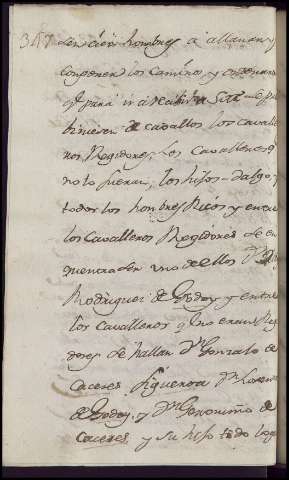 347
cien hombres a allanar y
componer los caminos y
q.e para ir a recibir a
de cavallos los cavalle
ros Regidores, los Cavalleros q
no lo fueran, los hijos-dalgo, y
todos los hombres Ricos y entre
los Cavalleros Regidores se en
uno de ellos D.n
Rodriguez de Godoy y entre
los cavalleros q no eran Re
dores se hallan D.n Gonzalo de
Caceres Figueroa D.n Lorenzo
de Godoy, y D.n Geronimo de
Caceres y su hijo todo